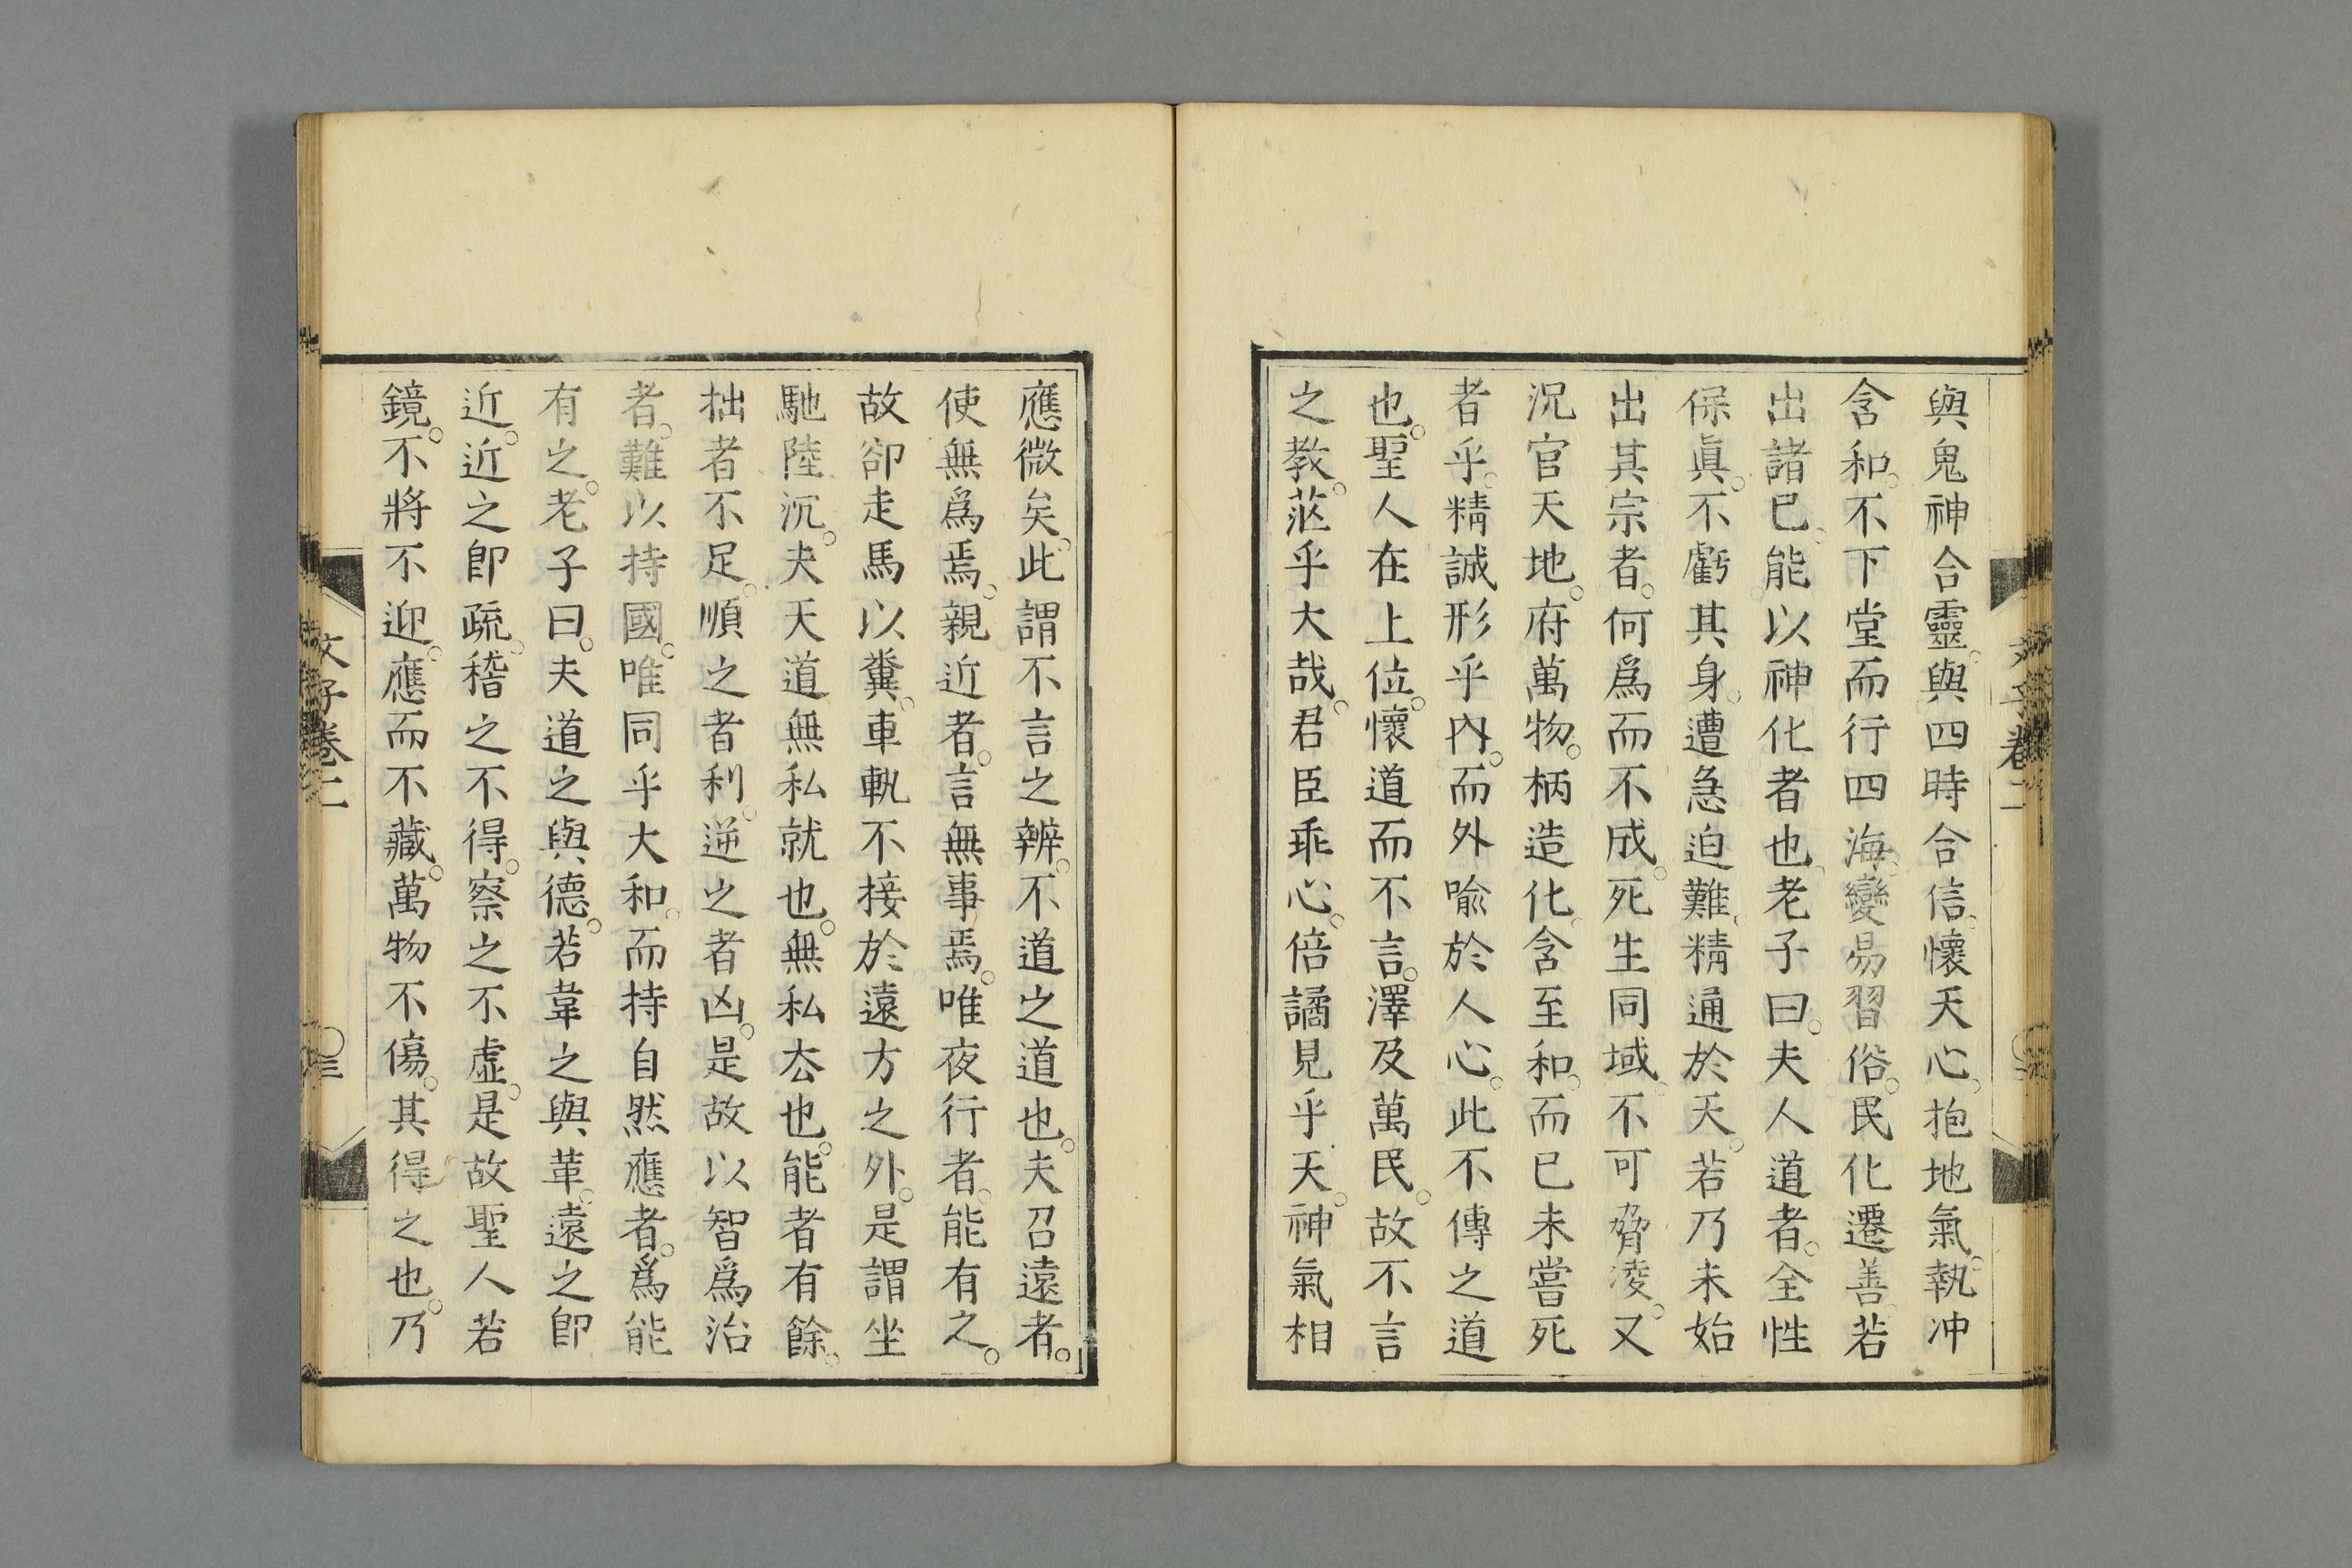 與鬼神合靈。與四時合信。懷天心。抱地氣。執冲
含和。不下堂而行四海。變易習俗。民化遷善。若
出諸已。能以神化者也。老子曰。夫人道者。全性
保眞。不虧其身。遭急迫難。精通於天。若乃未始
出其宗者。何爲而不成。死生同域。不可脅凌。又
況官天地。府萬物。柄造化。含至和。而已未嘗死
者乎。精誠形乎內。而外喩於人心。此不傳之道
也。聖人在上位。懷道而不言。澤及萬民。故不言
之教。茫乎大哉。君臣乖心。倍譎見乎天。神氣相
文子卷二
應微矣。此謂不言之辨。不道之道也。夫召遠者。
使無爲焉。親近者。言無事焉。唯夜行者。能有之。
故卻走馬以糞。車軌不接於遠方之外。是謂坐
馳陸沉。夫天道無私就也。無私去也。能者有餘。
拙者不足。順之者利。逆之者凶。是故以智爲治
者。難以持國。唯同乎大和。而持自然應者。爲能
有之。老子曰。夫道之與德。若韋之與革。遠之卽
近。近之卽疏。稽之不得。察之不虛。是故聖人若
鏡。不將不迎。應而不藏。萬物不傷。其得之也。乃
文子卷二
三